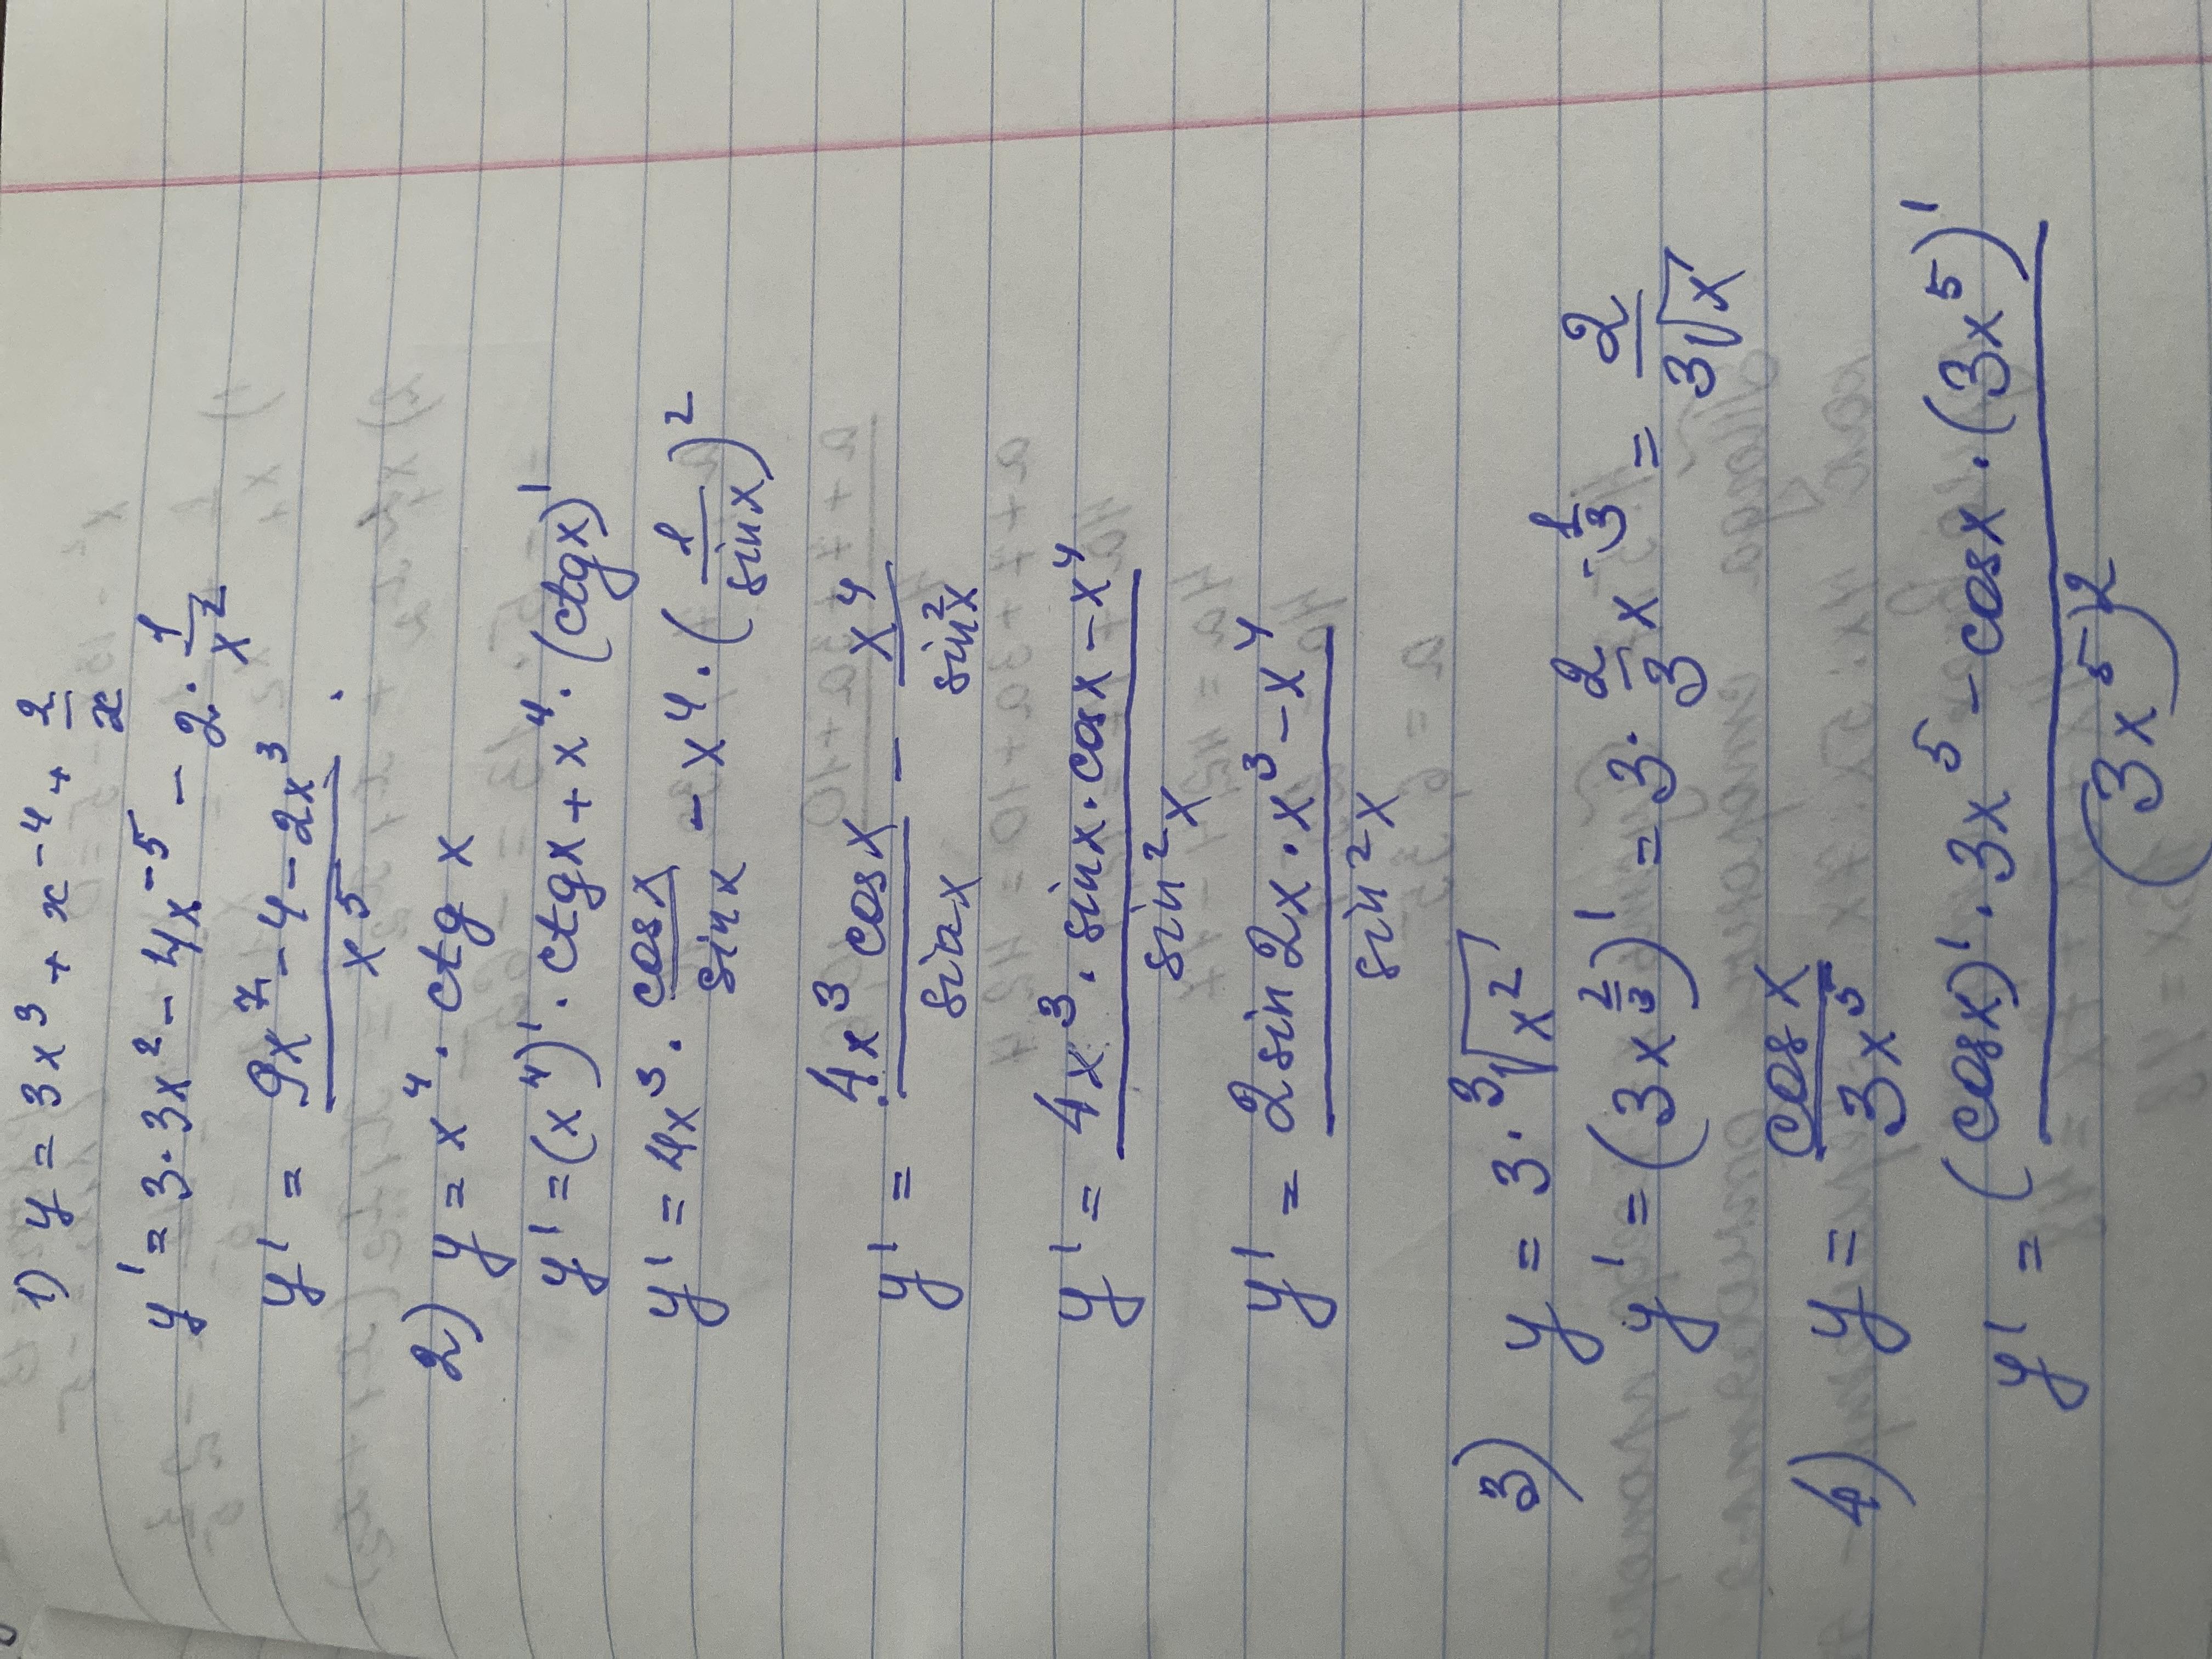 1) y = 3x³ + x⁻⁴ + 2/x
y' = 3·3x² - 4x⁻⁵ - 2·1/x²
y' = (9x⁷ - 4 - 2x³)/x⁵ .
2) y = x⁴ · ctg x
y' = (x⁴)' · ctgx + x⁴ · (ctgx)'
y' = 4x³ · cosx/sinx - x⁴ · (1/sinx)²
y' = 4x³ cosx/sinx - x⁴/sin²x
y' = (4x³ · sinx · cosx - x⁴)/sin²x
y' = (2sin2x · x³ - x⁴)/sin²x
3) y = 3 · ³√x²
y' = (3x^(2/3))' = 3 · 2/3 x^(-1/3) = 2/³√x
4) y = cosx/3x⁵
y' = ((cosx)' · 3x⁵ - cosx · (3x⁵)')/(3x⁵)²